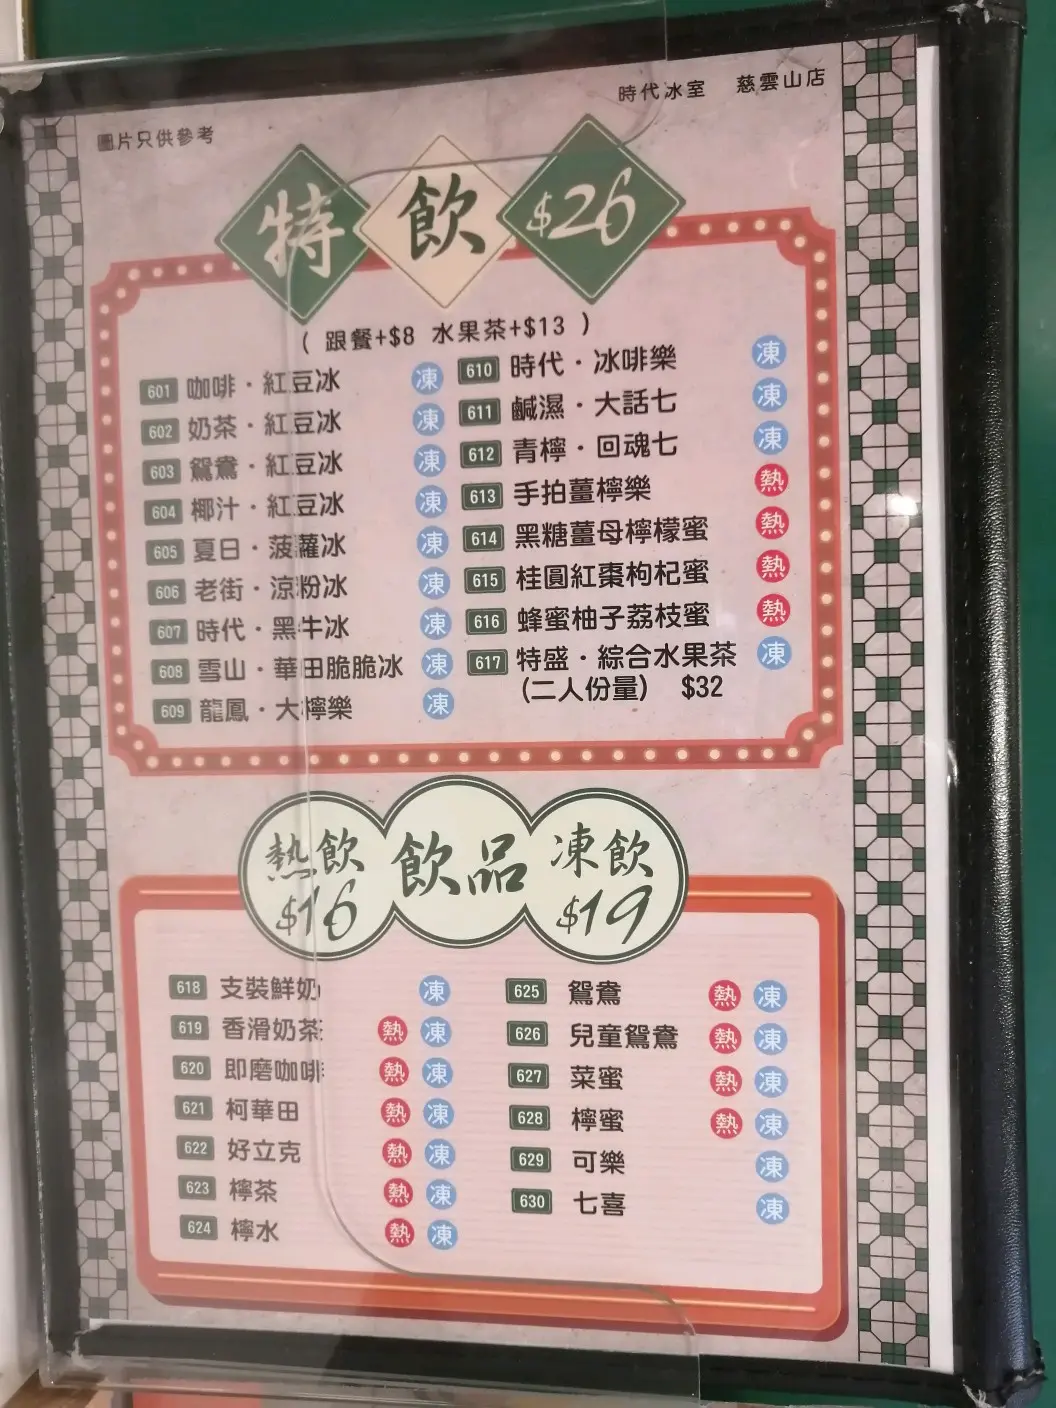 時代冰室 慈雲山店
圖片只供參考
特飲 $26
( 跟餐+$8 水果茶+$13 )
601 咖啡·紅豆冰 凍
602 奶茶·紅豆冰 凍
603 鴛鴦·紅豆冰 凍
604 椰汁·紅豆冰 凍
605 夏日·菠蘿冰 凍
606 老街·涼粉冰 凍
607 時代·黑牛冰 凍
608 雪山·華田脆脆冰 凍
609 龍鳳·大檸樂 凍
610 時代·冰啡樂 凍
611 鹹濕·大話七 凍
612 青檸·回魂七 凍
613 手拍薑檸樂 熱
614 黑糖薑母檸檬蜜 熱
615 桂圓紅棗枸杞蜜 熱
616 蜂蜜柚子荔枝蜜 熱
617 特盛·綜合水果茶 凍
(二人份量) $32
熱飲 $16
飲品
凍飲 $19
618 支裝鮮奶 凍
619 香滑奶茶 熱 凍
620 即磨咖啡 熱 凍
621 柯華田 熱 凍
622 好立克 熱 凍
623 檸茶 熱 凍
624 檸水 熱 凍
625 鴛鴦 熱 凍
626 兒童鴛鴦 熱 凍
627 菜蜜 熱 凍
628 檸蜜 熱 凍
629 可樂 凍
630 七喜 凍